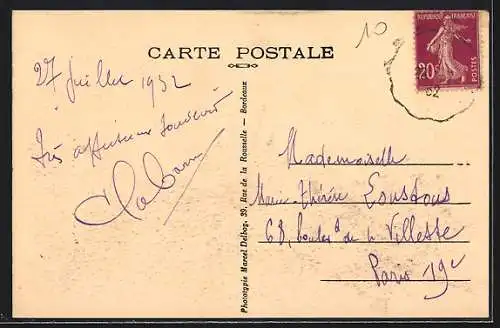 CARTE POSTALE
10
REPUBLIQUE FRANÇAISE
20c
POSTES
27 Juillet 1932
Très affectueux souvenir
Phototypie Marcel Delboy, 39, Rue de la Rousselle — Bordeaux
Mademoiselle
Marie-Thérèse Loustous
68, boulevd de la Villette
Paris 19e